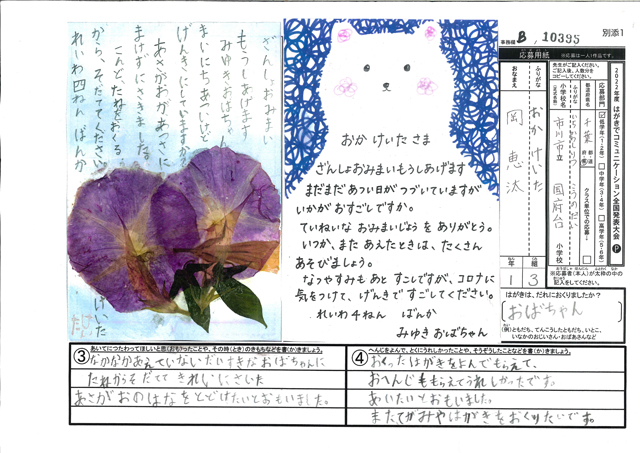 ざんしょおみまい
もうしあげます
みゆきおばちゃん
まいにちあついけど
げんきにしていますか？
あさがおがあさに
まけずにさきました。
こんど、たねをおくる
から、そだててください。
れいわ四ねん ばんか
けいた
おか けいた さま
ざんしょおみまいもうしあげます
まだまだ あつい日が つづいていますが
いかが おすごしですか。
ていねいな おみまいじょう を ありがとう。
いつか、また あえたときは、たくさん
あそびましょう。
なつやすみも あと すこしですが、コロナに
気をつけて、げんきで すごしてください。
れいわ 4ねん ばんか
みゆき おばちゃん
事務欄 B, 10395
別添1
2022年度 はがきでコミュニケーション全国発表大会
応募用紙
※応募は一人1作品です。
応募部門
低学年(1・2年)
中学年(3・4年)
高学年(5・6年)
千葉
小学校名
市川市立 国府台 小学校
クラス単位での応募
ふりがな おか けいた
おなまえ 岡 恵汰
1年 3組
はがきは、だれにおくりましたか？
おばちゃん
(例)ともだち、てんこうしたともだち、いとこ、
いなかのおじいさん・おばあさんなど
③ あいてにつたわってほしいと思(おも)ったことや、その時(とき)のきもちなどを書(か)きましょう。
なかなかあえていないだいすきなおばちゃんに
たねからそだてて きれいにさいた
あさがおのはなをとどけたいとおもいました。
④ へんじをよんで、とくにうれしかったことや、そうぞうしたことなどを書(か)きましょう。
おくったはがきをよんでもらえて、
おへんじももらえてうれしかったです。
あいたいとおもいました。
またてがみやはがきをおくりたいです。